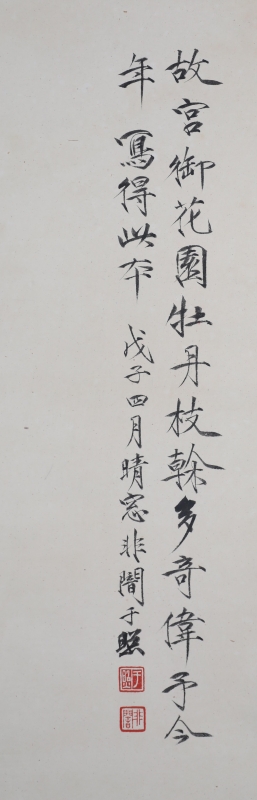 故宮御花園牡丹枝榦多奇偉予今
年寫得此本 戊子四月晴窓非闇于照
于照
非闇